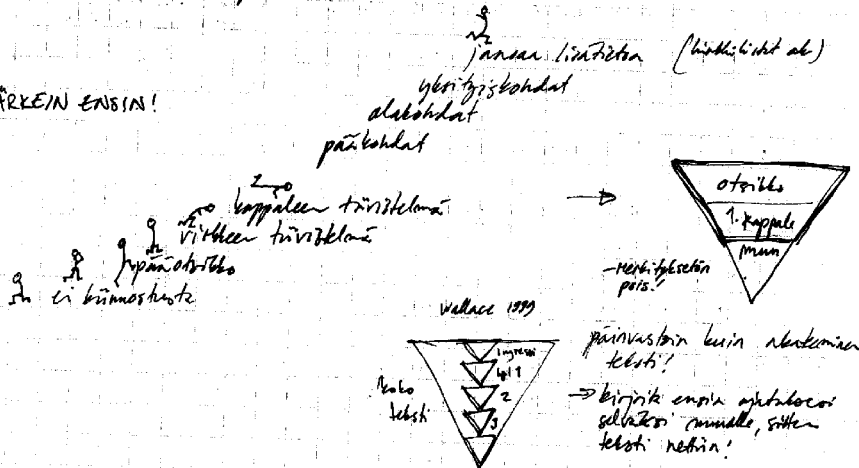 janoaa lisätietoa (linkkilistat
yksityiskohdat
alakohdat
pääkohdat
ÄRKEIN ENSIN!
kappaleen tiivistelmä
virkkeen tiivistelmä
pääotsikko
ei kiinnostusta
otsikko
1. kappale
muu
-Merkityksetön
pois!
Wallace 1999
ingressi
kpl 1
2
3
koko
teksti
päinvastoin kuin akateeminen
teksti!
→ kirjoita ensin ajatuksesi
selväksi muualle, sitten
teksti nettiin!